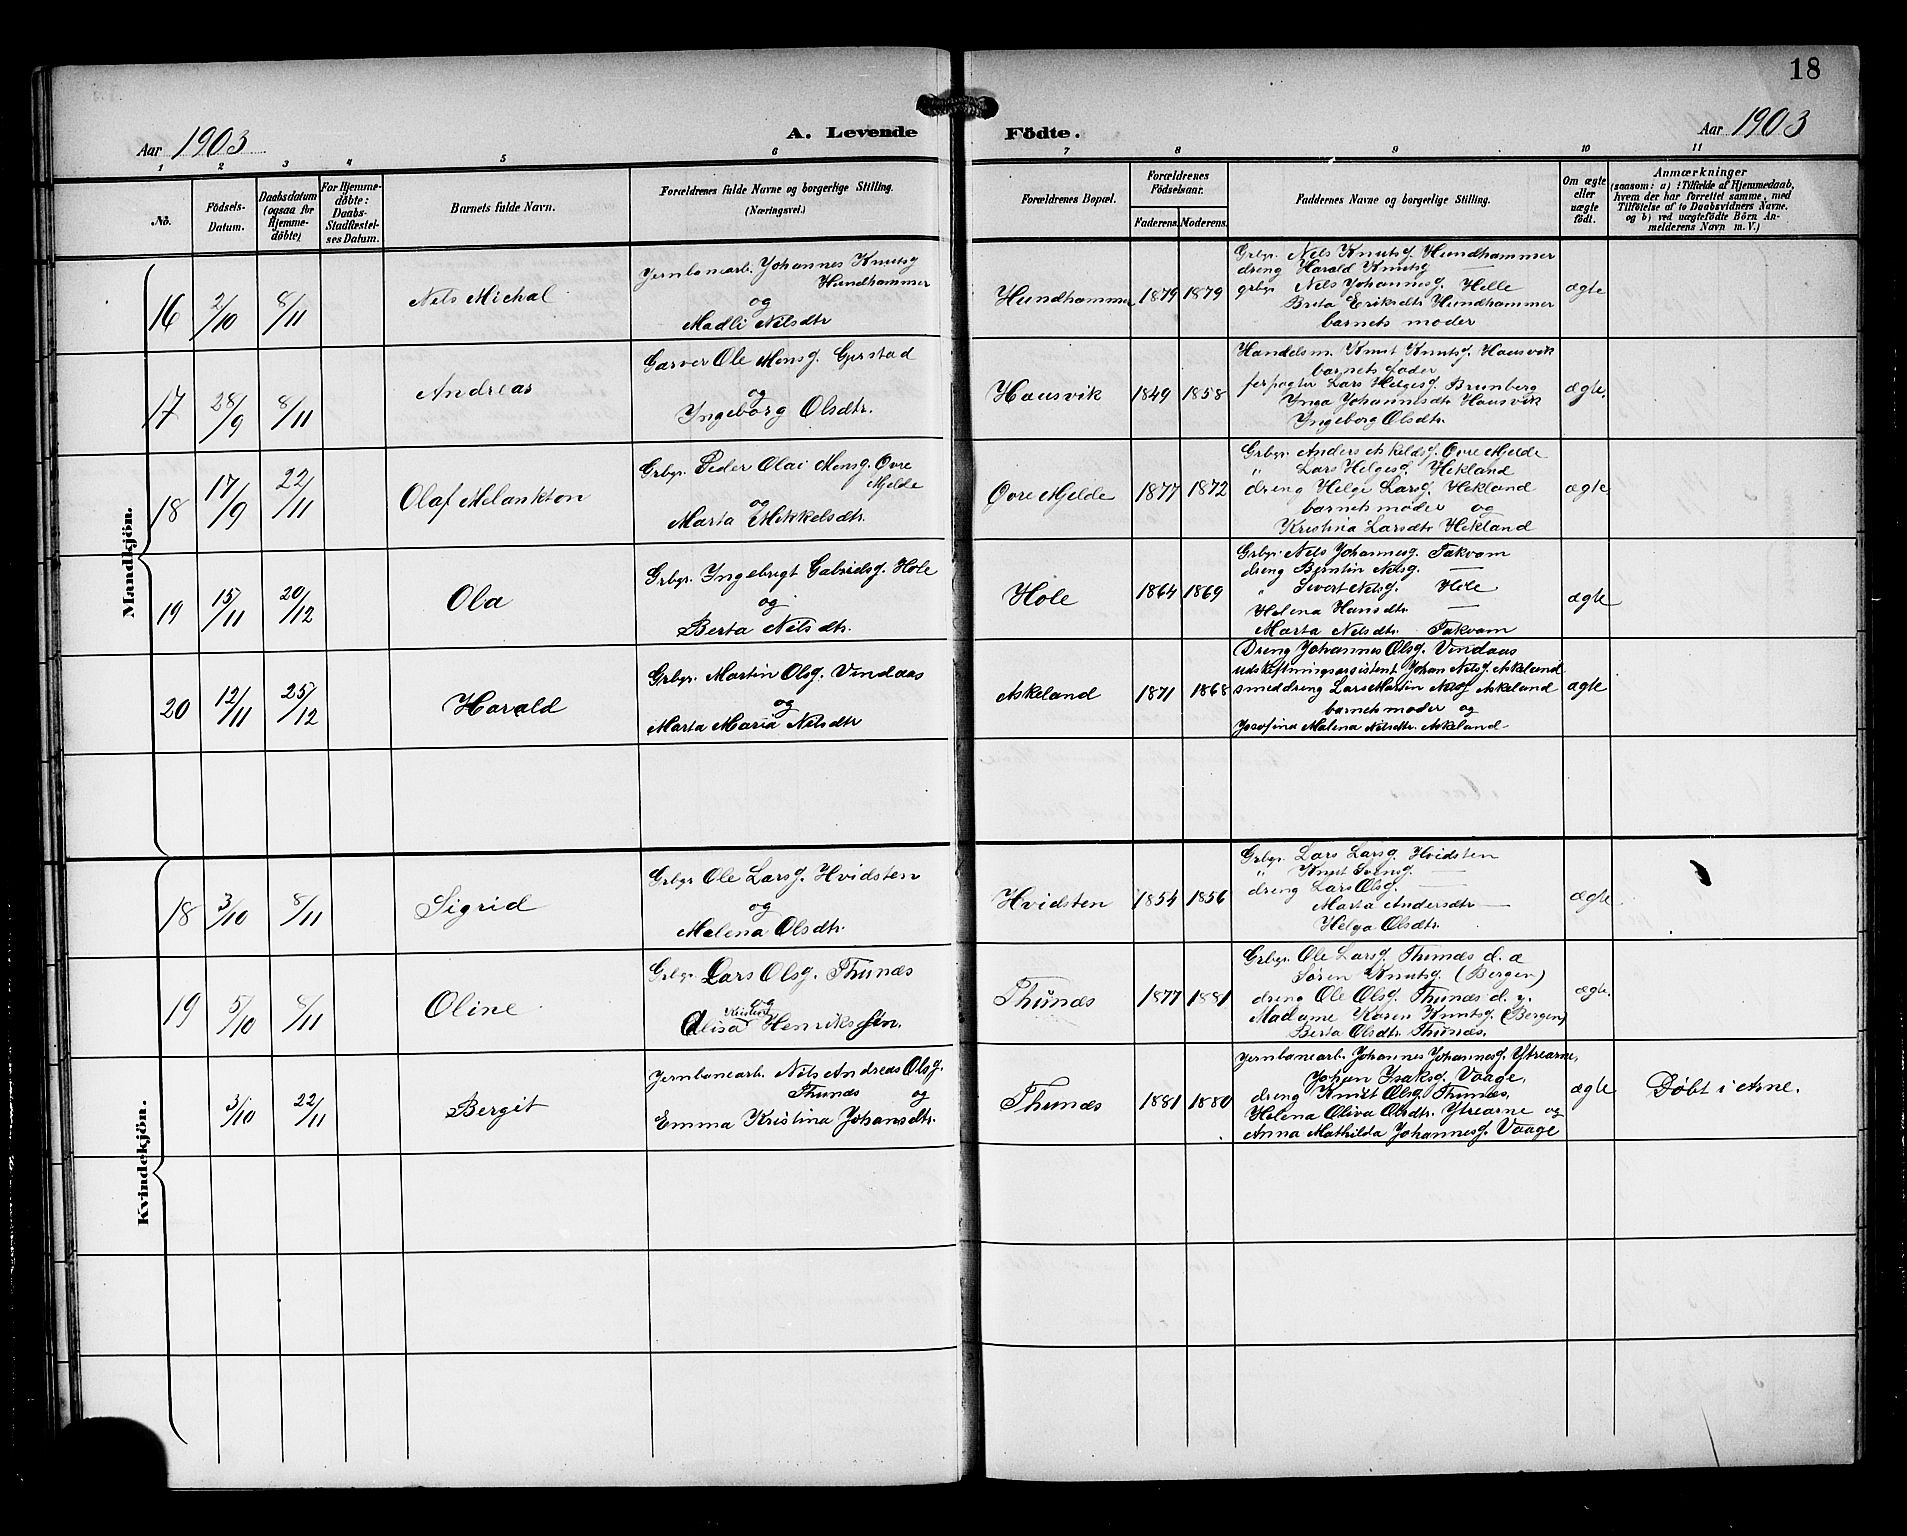 18
Aar 1903
A. Levende Födte.
Aar 1903
1 2 3 4 5 6 7 8 9 10 11
No.
Födsels-
Datum.
Daabsdatum
(ogsaa for
Hjemme-
døbte)
For Hjemme-
døbte:
Daabs-
Stadfæstel-
ses Datum.
Barnets fulde Navn.
Forældrenes fulde Navne og borgerlige Stilling.
(Næringsvei.)
Forældrenes Bopæl.
Forældrenes
Födselsaar.
Faderens. Moderens.
Faddernes Navne og borgerlige Stilling.
Om ægte
eller
uægte
født.
Anmærkninger
(saasom: a) i Tilfælde af Hjemmedaab,
hvem der har forrettet samme, med
Tilföielse af to Daabsvidners Navne.
og b) ved uægtefödte Börn An-
melderens Navn m. V.)
Mandkjön.
16
2/10
8/11
Nels Michal
Jernbanearb. Johannes Knutsg
Hundhammer
og
Madli Nilsdtr
Hundhammer
1879 1879
Grbgr. Nels Knutsg. Hundhammer
dreng Harald Knutsg —
grbgr Nels Johannesg. Helle
Brita Eriksdtr Hundhammer
barnets moder
ægte
17
28/9
8/11
Andreas
Garver Ole Monsg. Gjerstad
og
Ingeborg Olsdtr.
Hausvik
1849 1858
Handelsm. Knut Knutsg. Hausvik
barnets fader
forpagter Lars Helgesg. Brunberg
Inga Johannesdtr Hausvik
Ingeborg Olsdtr.
ægte.
18
17/9
22/11
Olaf Melankton
Grbgr. Peder Olai Monsg. Øvre
Mjelde
og
Marta Mikkelsdtr.
Øvre Mjelde
1877 1872
Grbgr. Anders Askeldsg. Øvre Mjelde
" Lars Helgesg. Hekland
dreng Helge Larsg. Hekland
barnets moder og
Kristina Larsdtr Hekland
ægte
19
15/11
20/12
Ola
Grbgr. Ingebrigt Gabrielsg. Hole
og
Berta Nilsdtr.
Hole
1864 1869
Grbgr. Nels Johannesg. Takvam
dreng Berntin Nelsg. —
" Sivert Nelsg. Hole
Helena Hansdtr. —
Marta Nelsdtr. Takvam
ægte
20
12/11
25/12
Harald
Grbgr. Martin Olsg. Vindaas
og
Marta Maria Nelsdtr
Askeland
1871 1868
Dreng Johannes Olsg. Vindaas
udskiftningsassistent Johan Nelsg. Askeland
smeddreng Lars Martin Nelsg Askeland
barnets moder og
Josefina Malena Nilsdtr. Askeland
ægte
Kvindekjön.
18
3/10
8/11
Sigrid
Grbgr Ole Larsg. Hvidsten
og
Malena Olsdtr.
Hvidsten
1854 1856
Grbgr. Lars Larsg. Hvidsten
" Knut Svensg. —
dreng Lars Olsg. —
Marta Andersdtr —
Helga Olsdtr.
ægte
19
5/10
8/11
Oline
Grbgr. Lars Olsg. Thunæs
og
Elisa Henriksen.
Thunæs
1877 1881
Grbgr. Ole Larsg. Thunæs d. æ
Søren Knutsg. (Bergen)
dreng Ole Olsg. Thunæs d. y.
Madame Karen Knutsg. (Bergen)
Berta Olsdtr Thunæs.
ægte.
3/10
22/11
Bergit
Jernbanearb. Nils Andreas Olsg.
Thunæs og
Emma Kristina Johansdtr.
Thunæs
1881 1880
Jernbanearb. Johannes Johannesg. Ytrearne,
Johan Isaksg. Vaage,
dreng Knut Olsg. Thunæs,
Helena Oliva Olsdtr. Ytrearne og
Anna Mathilda Johannesg. Vaage
ægte
Døbt i Arne.